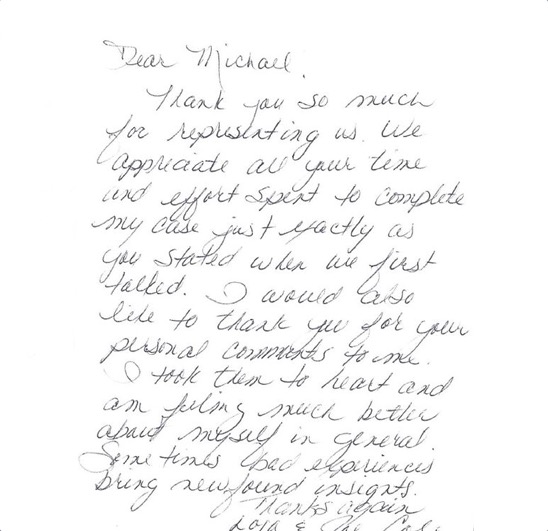 Dear Michael,
Thank you so much
for representing us. We
appreciate all your time
and effort spent to complete
my case just exactly as
you stated when we first
talked. I would also
like to thank you for your
personal comments to me.
I took them to heart and
am feeling much better
about myself in general.
Sometimes bad experiences
bring newfound insights.
Thanks again
& The